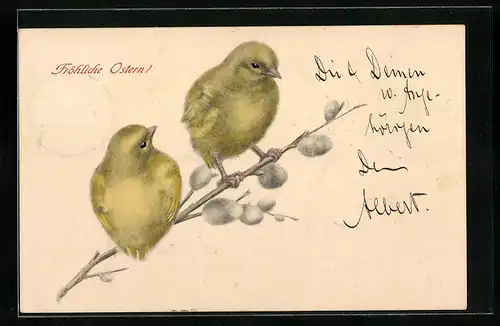 Fröhliche Ostern!
Dir & Deinen
w. Ange-
hörigen
Dein
Albert.